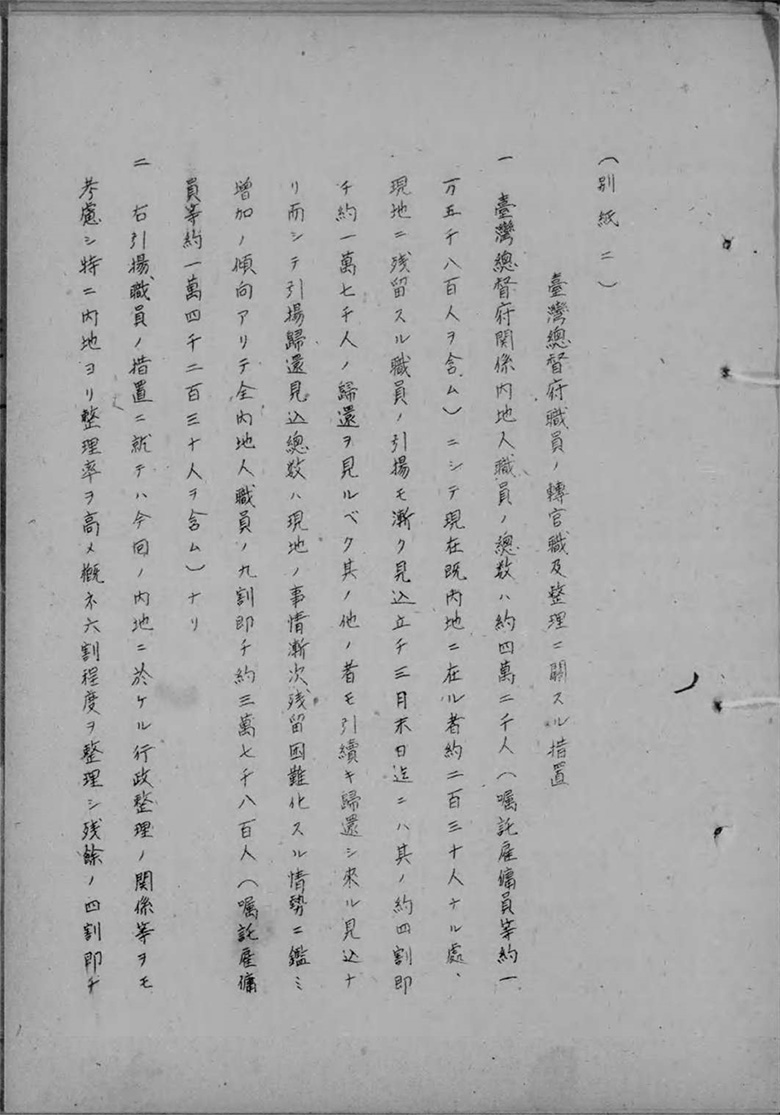 （別紙二）
臺灣總督府職員ノ轉官職及整理ニ關スル措置
一 臺灣總督府關係内地人職員ノ總数ハ約四萬二千人（嘱託雇傭員等約一
万五千八百人ヲ含ム）ニシテ現在既内地ニ在ル者約二百三十人ナル處、
現地ニ残留スル職員ノ引揚モ漸ク見込立チ三月末日迄ニハ其ノ約四割即
チ約一萬七千人ノ歸還ヲ見ルベク其ノ他ノ者モ引續キ歸還シ來ル見込ナ
リ而シテ引揚歸還見込總数ハ現地ノ事情漸次残留困難化スル情勢ニ鑑ミ
增加ノ傾向アリテ全内地人職員ノ九割即チ約三萬七千八百人（嘱託雇傭
員等約一萬四千二百三十人ヲ含ム）ナリ
二 右引揚職員ノ措置ニ就テハ今回ノ内地ニ於ケル行政整理ノ關係等ヲモ
考慮シ特ニ内地ヨリ整理率ヲ高メ概ネ六割程度ヲ整理シ残餘ノ四割即チ